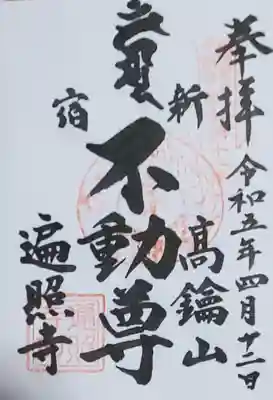 奉拝 令和五年四月十二日
新宿
高鑰山
不動尊
遍照寺